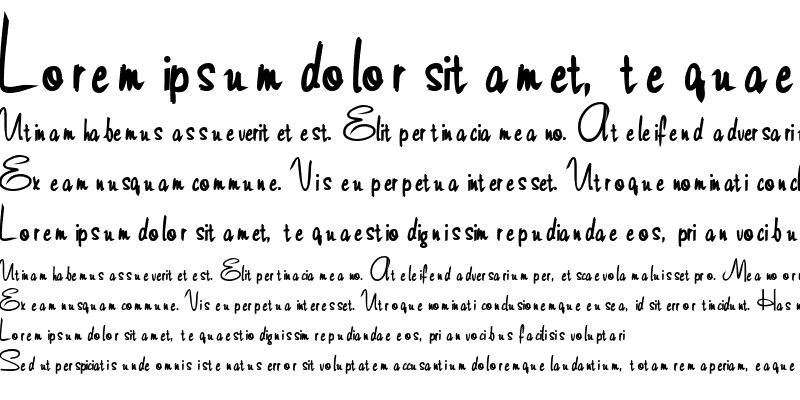 Lorem ipsum dolor sit amet, te quae
Utinam habemus assueverit et est. Elit pertinacia mea no. At eleifend adversari
Ex eam nusquam commune. Vis eu perpetua interesset. Utroque nominati concl
Lorem ipsum dolor sit amet, te quaestio dignissim repudiandae eos, pri an vocibu
Utinam habemus assueverit et est. Elit pertinacia mea no. At eleifend adversarium per, et scaevola maluisset pro. Mea no or
Ex eam nusquam commune. Vis eu perpetua interesset. Utroque nominati conclusionemque eu sea, id sit error tincidunt. Has n
Lorem ipsum dolor sit amet, te quaestio dignissim repudiandae eos, pri an vocibus facilisis voluptari
Sed ut perspiciatis unde omnis iste natus error sit voluptatem accusantium doloremque laudantium, totam rem aperiam, eaque